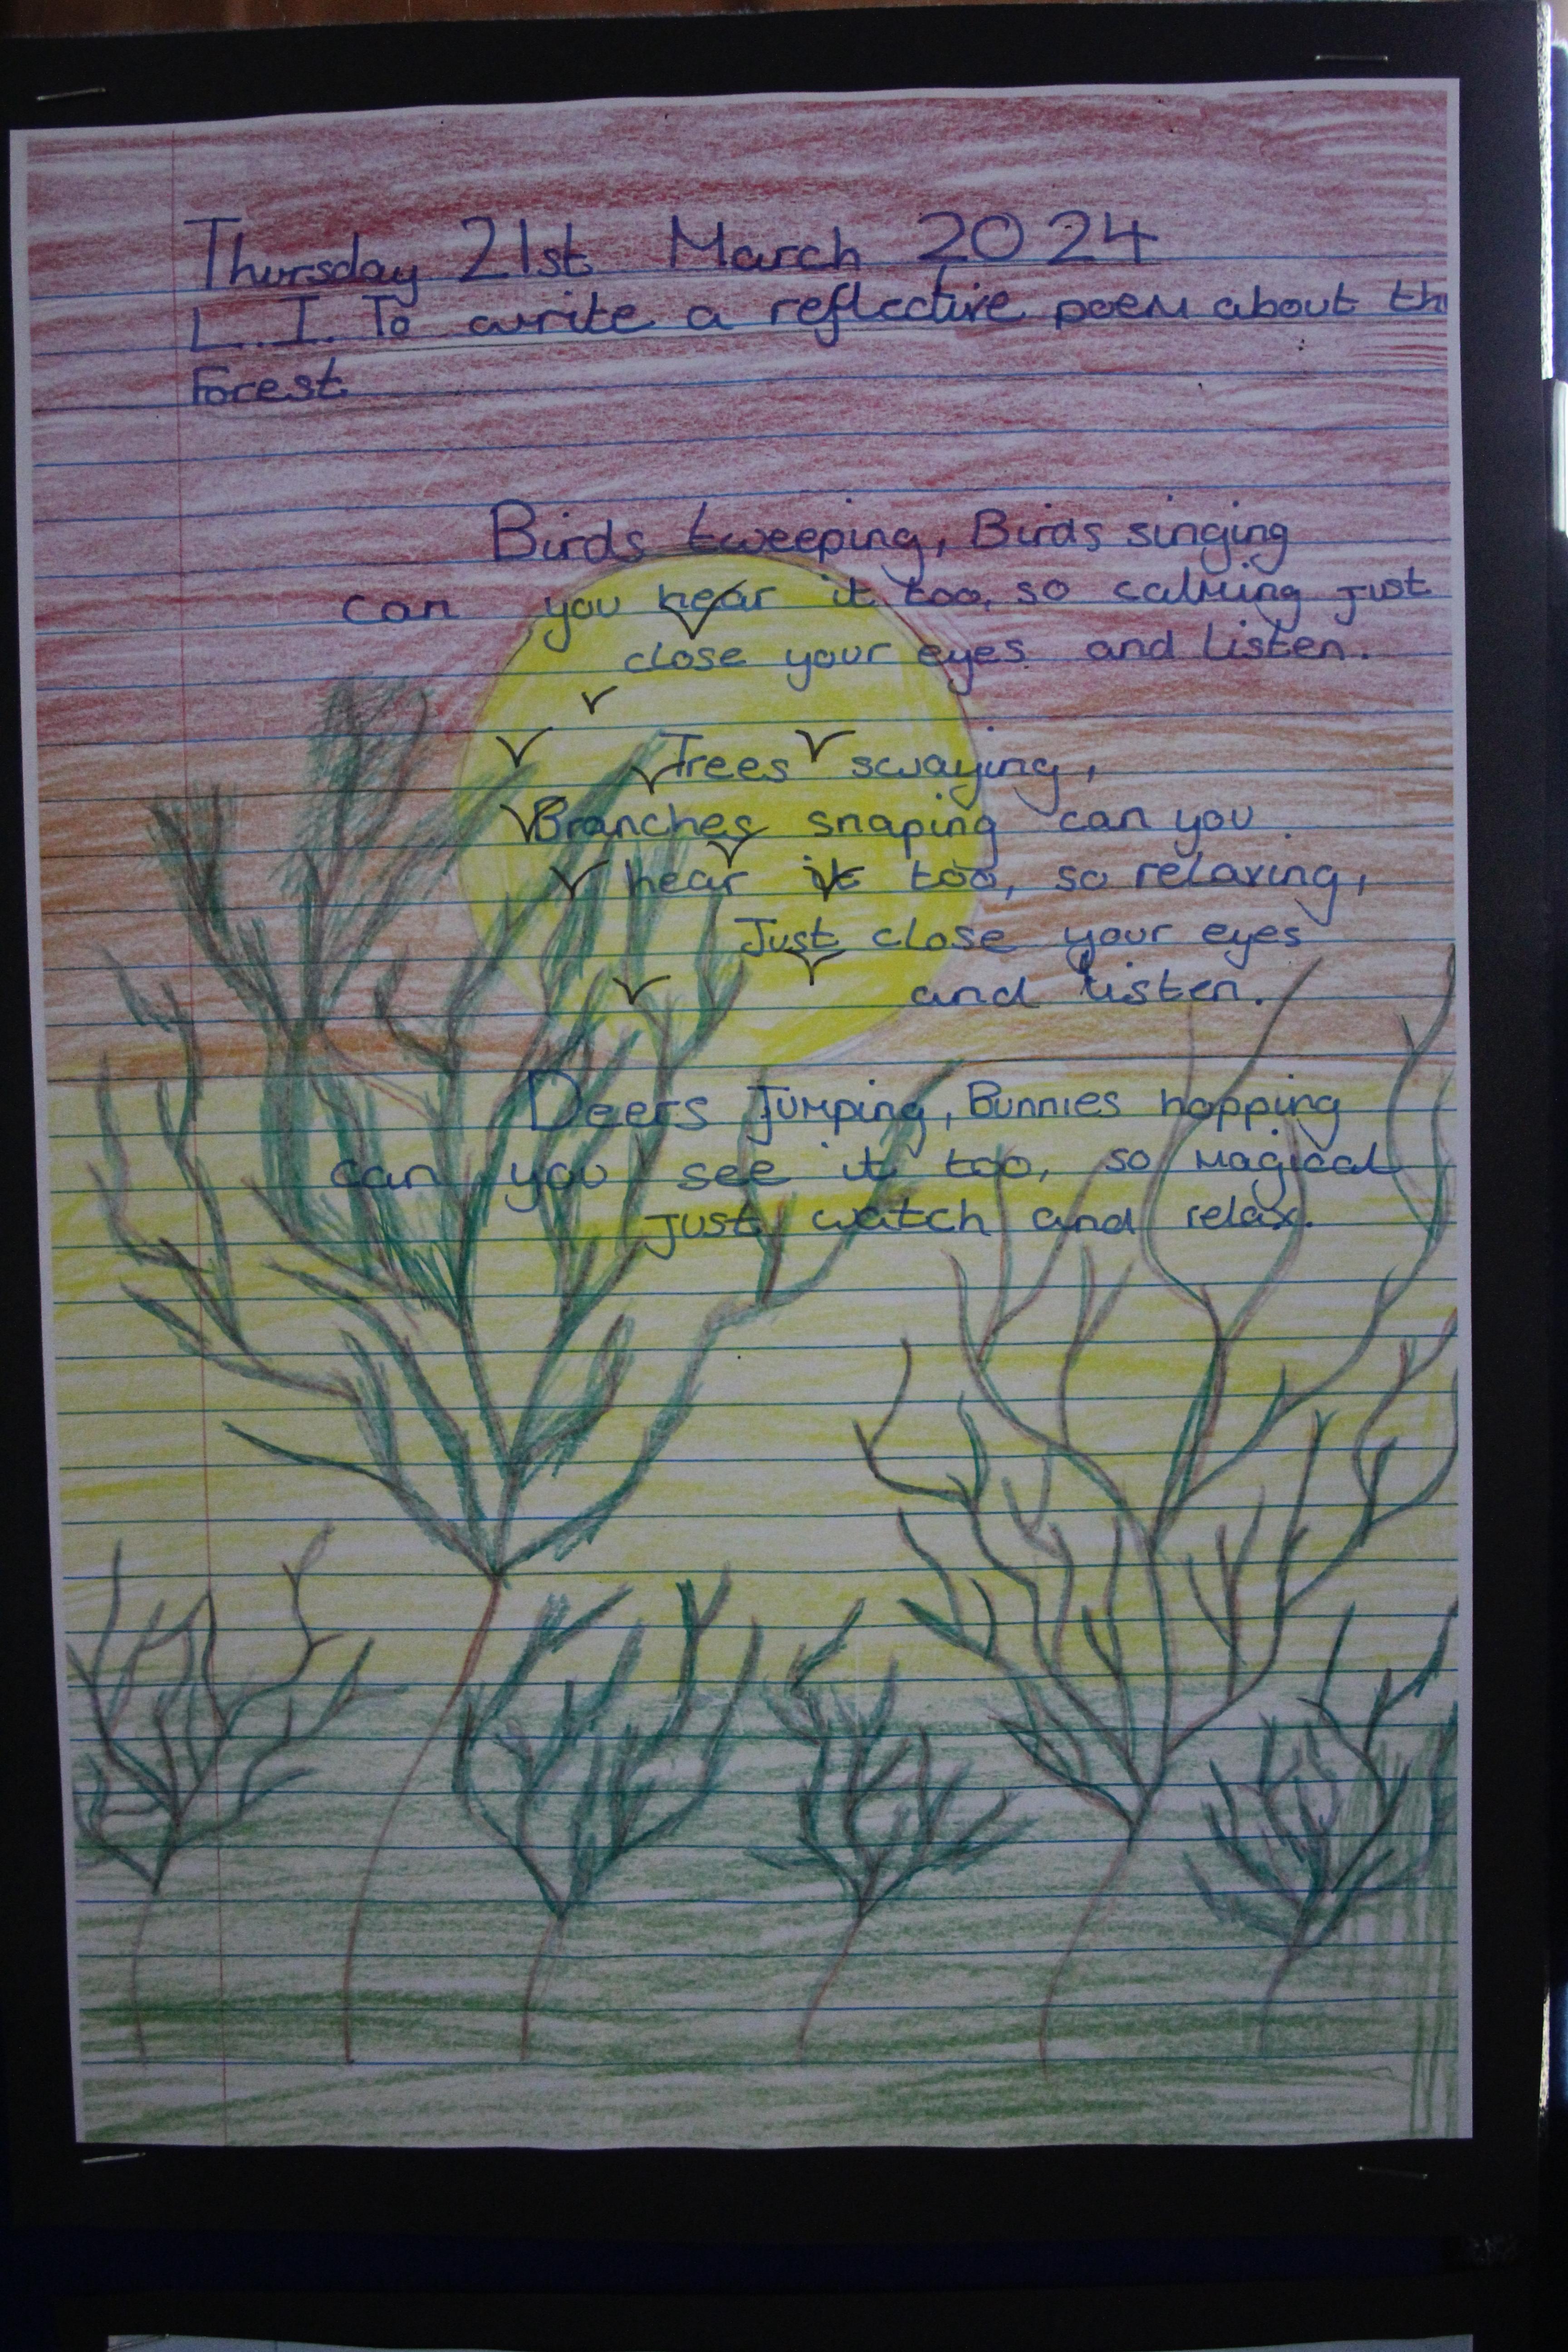 Thursday 21st March 2024
L.I. To write a reflective poem about th
Forest
Birds tweeping, Birds singing
can you hear it too, so calming just
close your eyes and listen.
Trees swaying,
Branches snaping can you
hear it too, so relaxing,
Just close your eyes
and listen.
Deers Jumping, Bunnies hopping
can you see it too, so magical
just watch and relax.